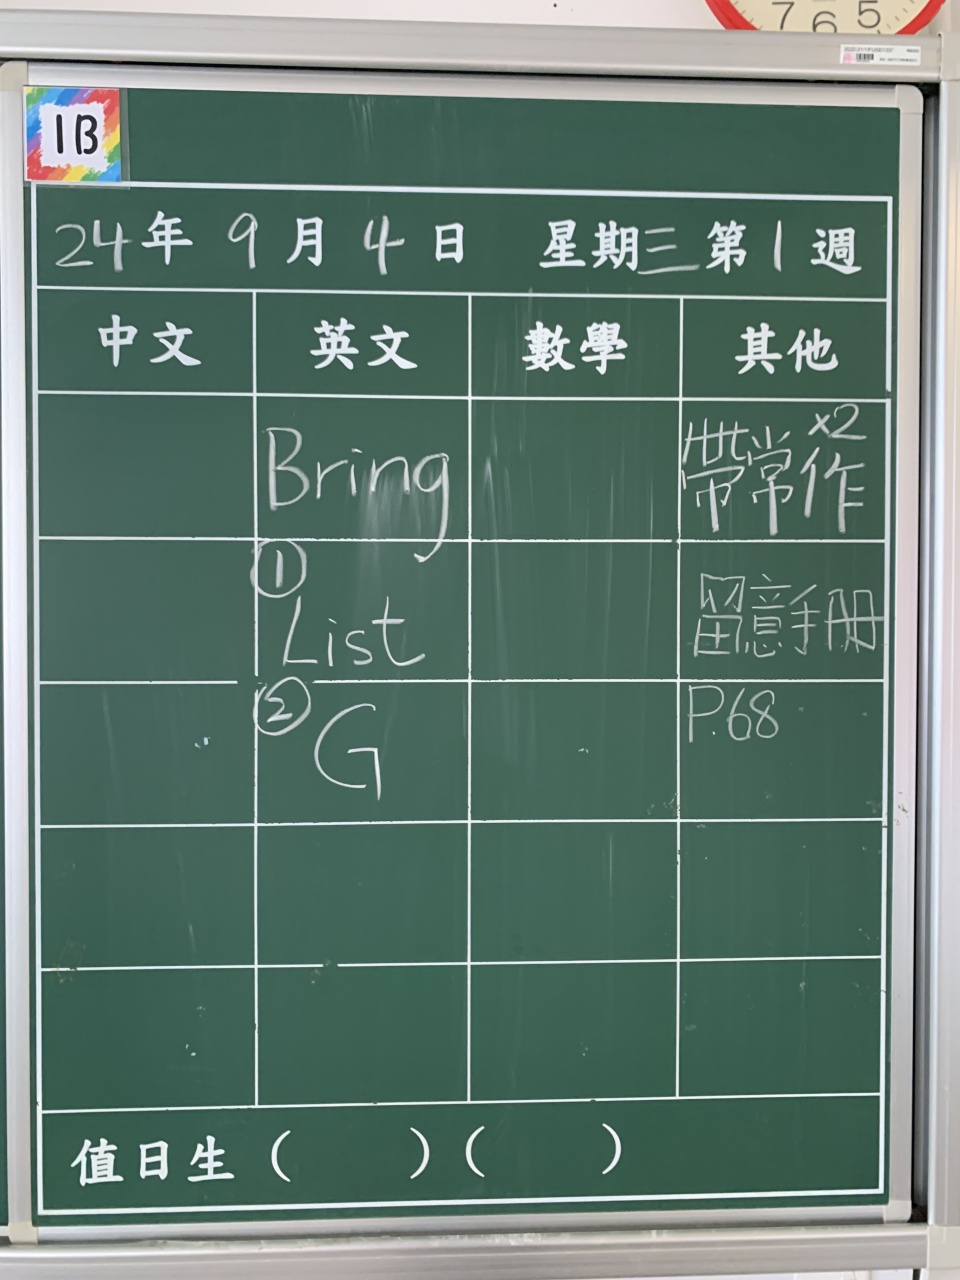 7 6 5
1B
24年 9月 4日 星期三 第1週
中文 英文 數學 其他
Bring 帶常作 x2
① List 留意手冊
② G P.68
值日生 ( ) ( )